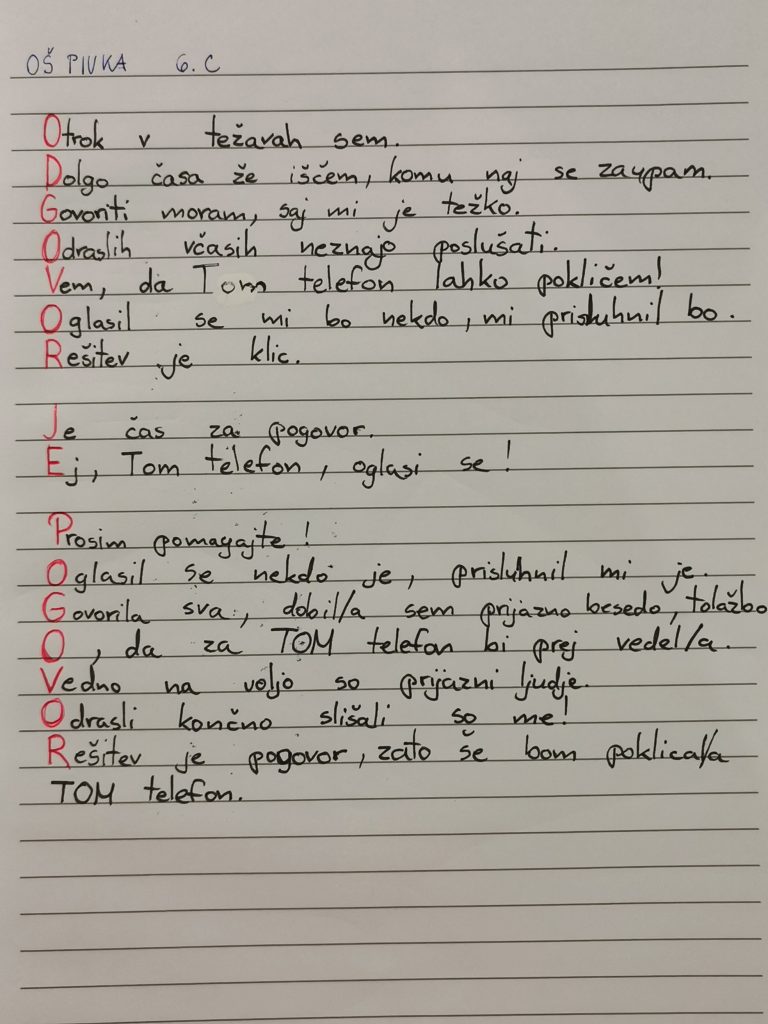 OŠ PIVKA 6. C
Otrok v težavah sem.
Dolgo časa že iščem, komu naj se zaupam.
Govoriti moram, saj mi je težko.
Odraslih včasih neznajo poslušati.
Vem, da Tom telefon lahko pokličem!
Oglasil se mi bo nekdo, mi prisluhnil bo.
Rešitev je klic.
Je čas za pogovor.
Ej, Tom telefon, oglasi se!
Prosim pomagajte!
Oglasil se nekdo je, prisluhnil mi je.
Govorila sva, dobil/a sem prijazno besedo, tolažbo
O, da za TOM telefon bi prej vedel/a.
Vedno na voljo so prijazni ljudje.
Odrasli končno slišali so me!
Rešitev je pogovor, zato še bom poklical/a
TOM telefon.